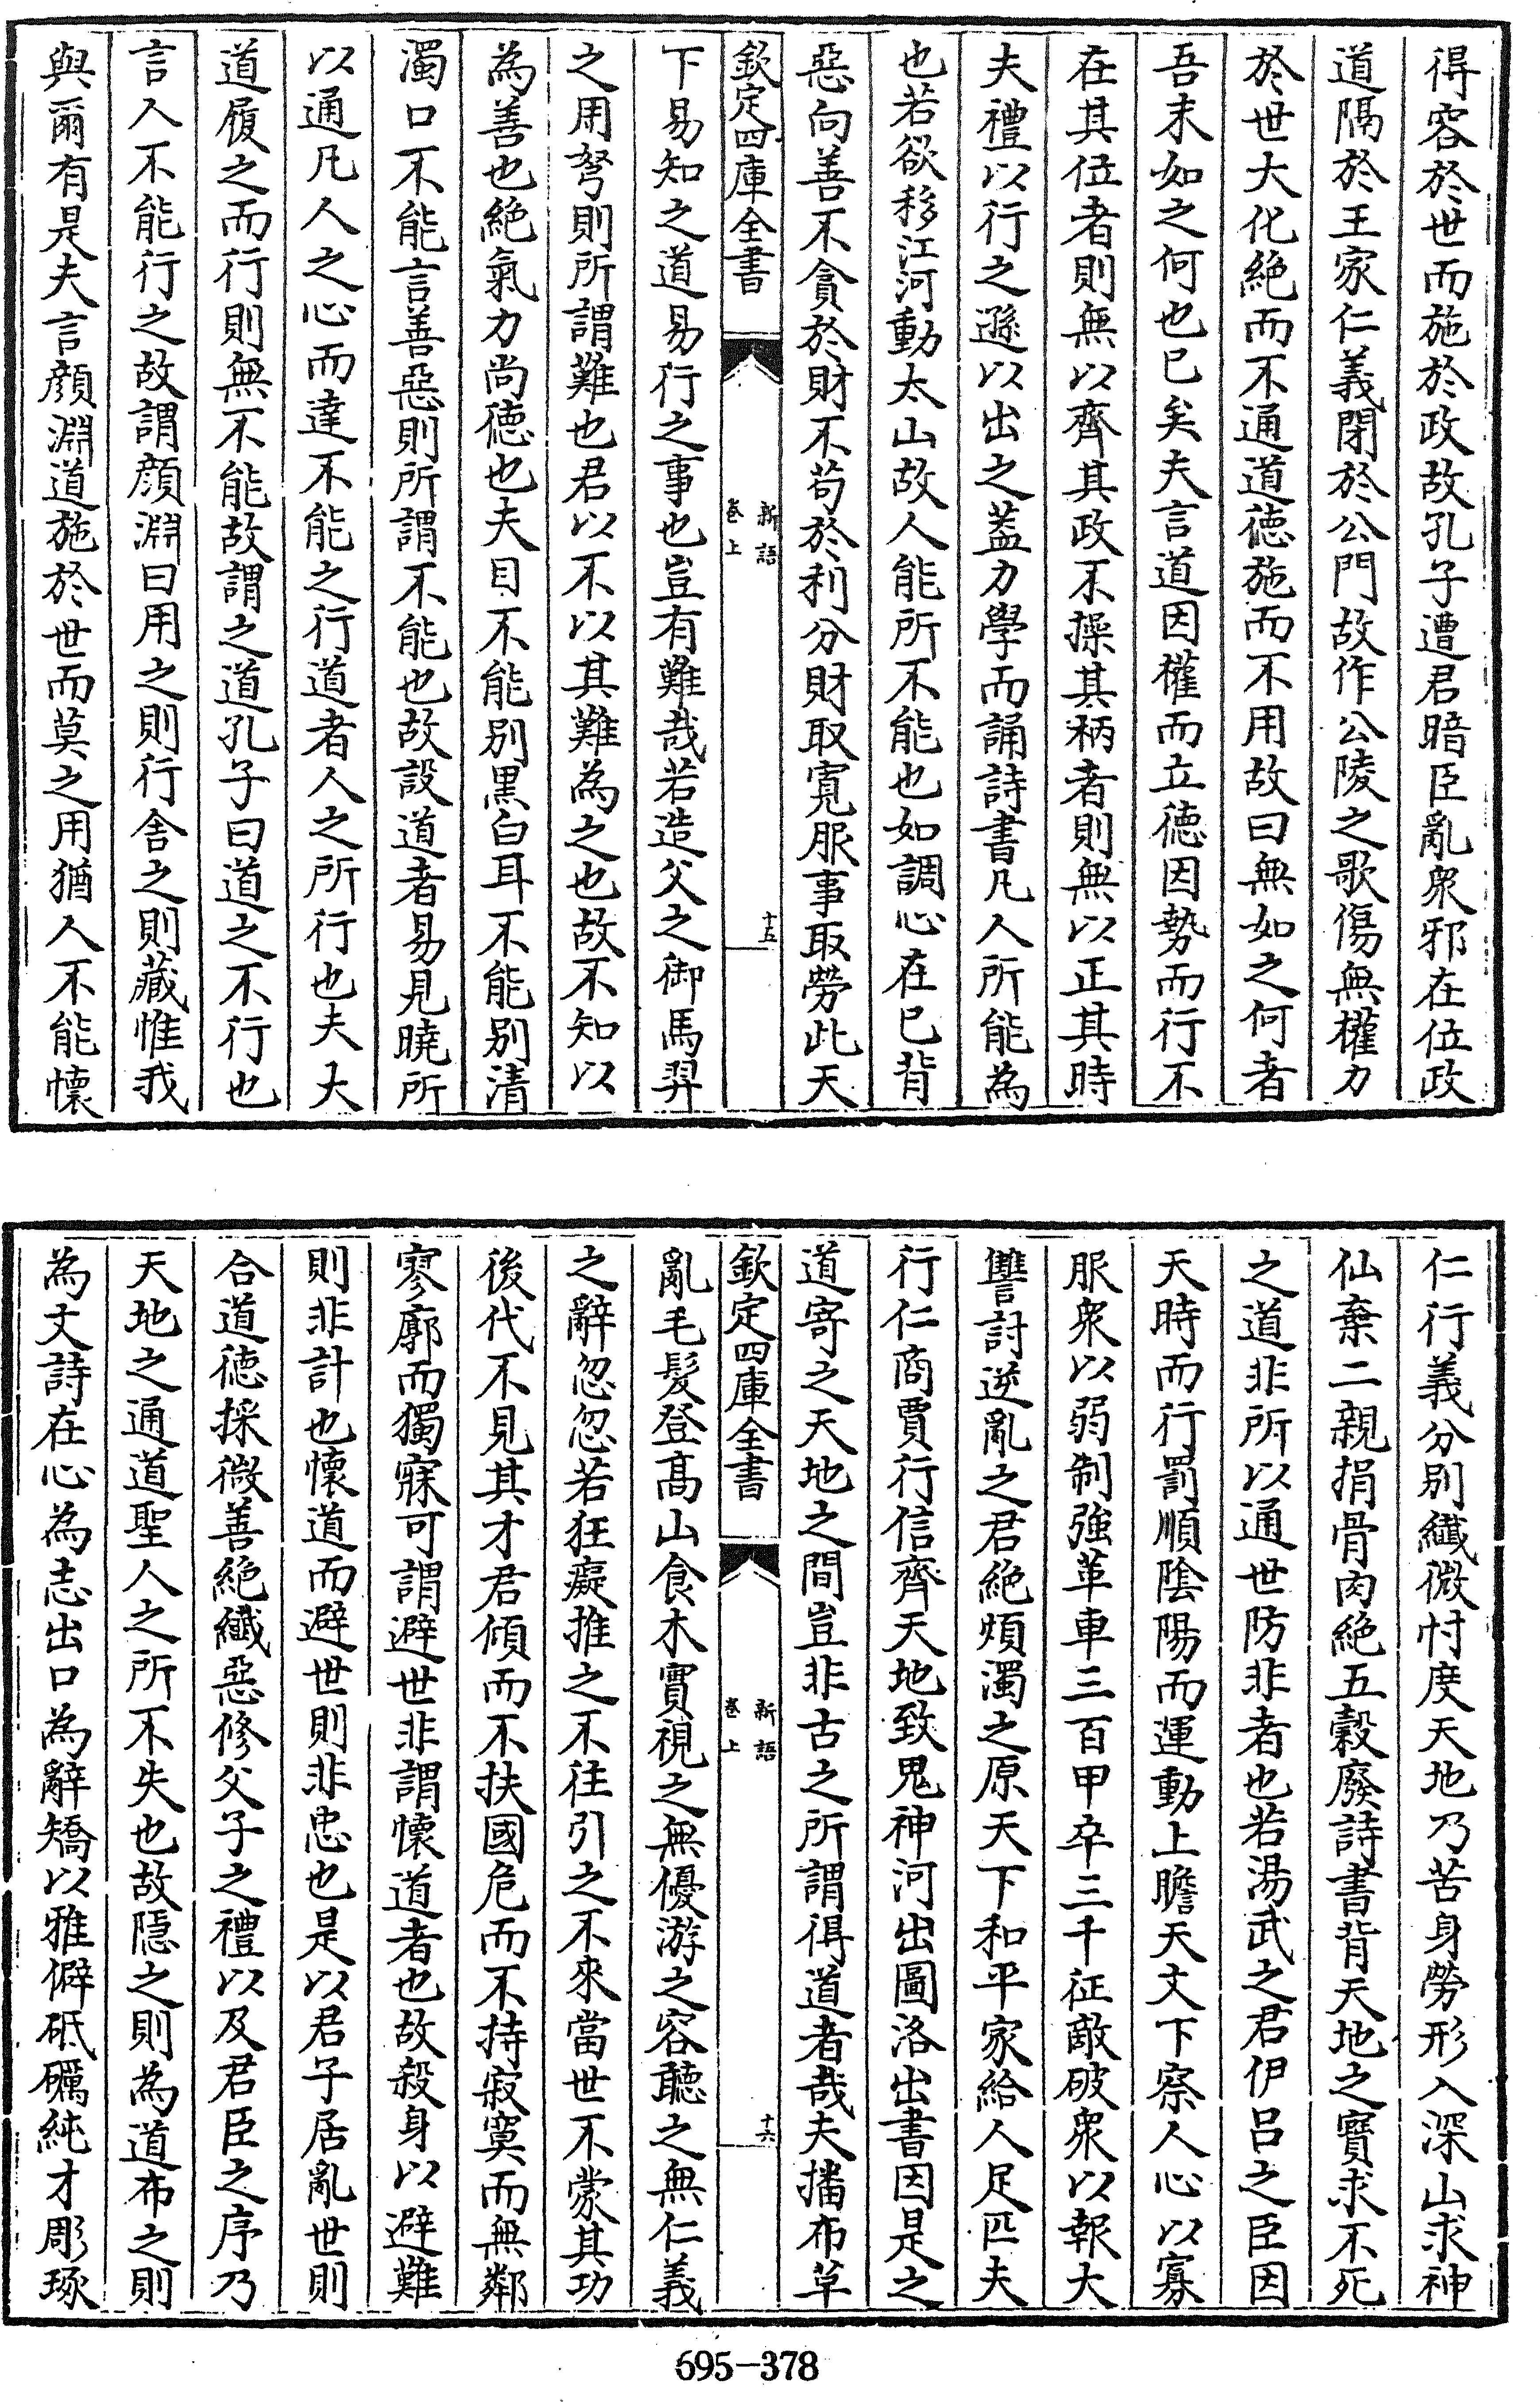 得容於世而施於政故孔子遭君暗臣亂衆邪在位政
道隔於王家仁義閉於公門故作公陵之歌傷無權力
於世大化絶而不通道徳施而不用故曰無如之何者
吾末如之何也已矣夫言道因權而立徳因勢而行不
在其位者則無以齊其政不操其柄者則無以正其時
夫禮以行之遜以出之葢力學而誦詩書凡人所能為
也若欲移江河動太山故人能所不能也如調心在已背
惡向善不貪於財不苟於利分財取寛服事取勞此天
欽定四庫全書
新語
卷上
十五
下易知之道易行之事也豈有難哉若造父之御馬羿
之用弩則所謂難也君以不以其難為之也故不知以
為善也絶氣力尚徳也夫目不能别黒白耳不能别清
濁口不能言善惡則所謂不能也故設道者易見曉所
以通凡人之心而達不能之行道者人之所行也夫大
道履之而行則無不能故謂之道孔子曰道之不行也
言人不能行之故謂顔淵曰用之則行舍之則藏惟我
與爾有是夫言顔淵道施於世而莫之用猶人不能懐
仁行義分别纎微忖度天地乃苦身勞形入深山求神
仙棄二親捐骨肉絶五穀廢詩書背天地之寳求不死
之道非所以通世防非者也若湯武之君伊吕之臣因
天時而行罰順隂陽而運動上瞻天文下察人心以寡
服衆以弱制強革車三百甲卒三千征敵破衆以報大
讐討逆亂之君絶煩濁之原天下和平家給人足匹夫
行仁商賈行信齊天地致鬼神河出圖洛出書因是之
道寄之天地之間豈非古之所謂得道者哉夫播布革
欽定四庫全書
新語
卷上
十六
亂毛髪登髙山食木實視之無優游之容聽之無仁義
之辭忽忽若狂癡推之不往引之不來當世不蒙其功
後代不見其才君傾而不扶國危而不持寂寞而無鄰
寥廓而獨寐可謂避世非謂懐道者也故殺身以避難
則非計也懐道而避世則非忠也是以君子居亂世則
合道徳採微善絶纎惡修父子之禮以及君臣之序乃
天地之通道聖人之所不失也故隠之則為道布之則
為文詩在心為志出口為辭矯以雅僻砥礪純才彫琢
695-378